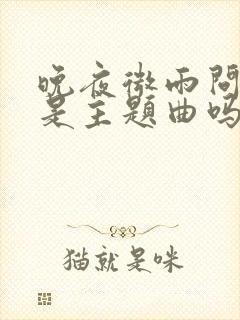 晚夜微雨问
是主题曲吗
猫就是咪